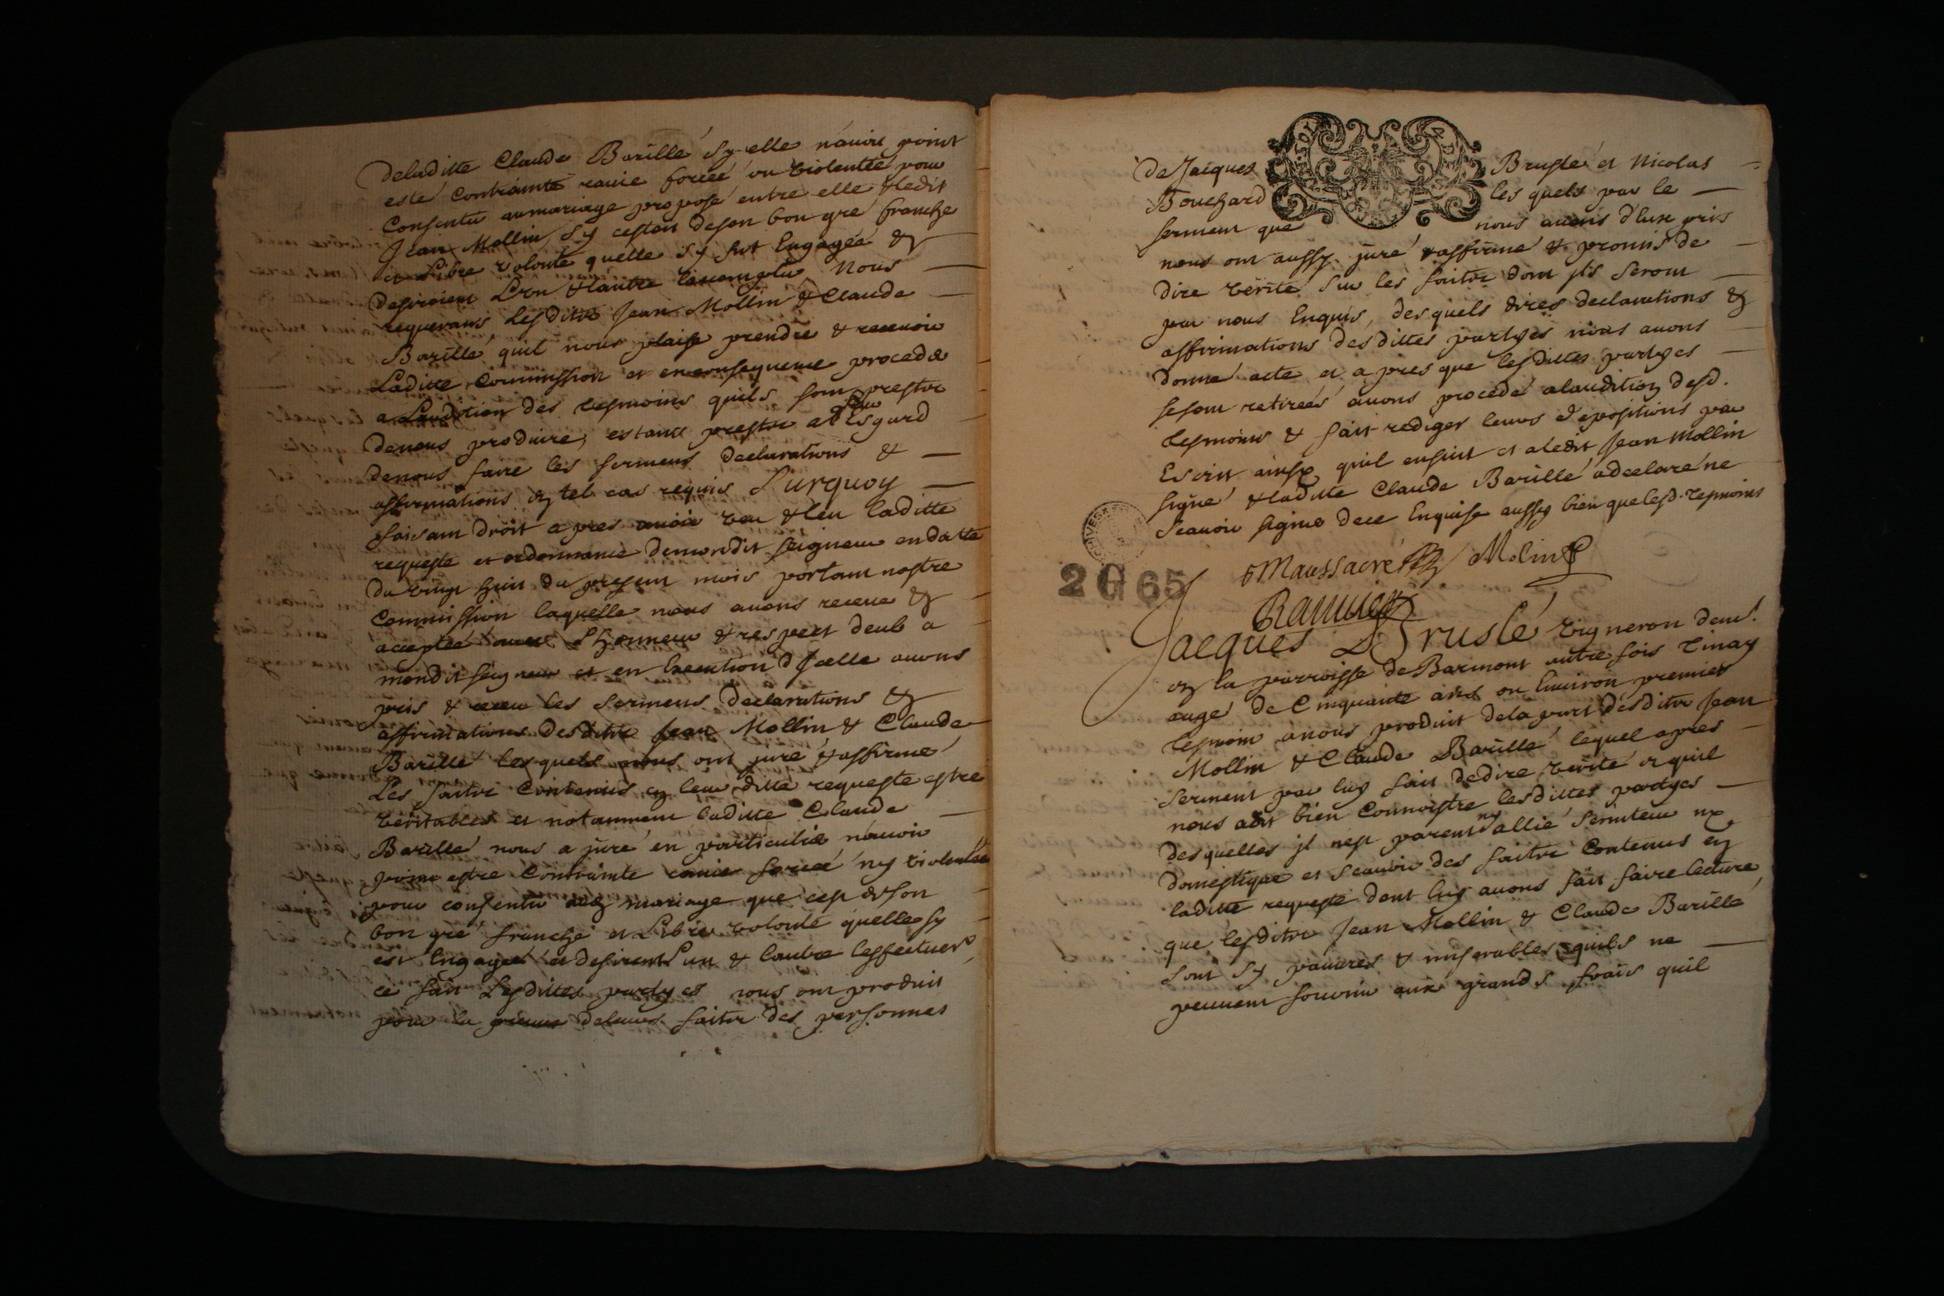 deladitte Claude Barillé sy elle n'avois point
esté contrainte ravie forcéé ou violentée pour
consentir aumariage proposé entre elle & ledit
Jean Mollin sy cestoit deson bon gré franche
et Libre volonté quelle sy fut Engagéé &
desiroient L'un & lautre Nous
requerans lesdits Jean Mollin & Claude
Barillé quil nous plaise prendre & recevoir
Laditte Commission et en consequence proceder
a Laudition des tesmoins quils sont prests
denous produire, estans prests aleur Esgard
denous faire les sermens declarations &
affirmations en tel cas requis Surquoy
faisant droit apres avoir veu & leu laditte
requeste et ordonnance demondit seigneur endatte
du vingt huit du present mois portant nostre
Commission laquelle nous avons receue &
acceptéé avec L'honneur & respect deub a
mondit seigneur et en Execution d'Jcelle avons
pris & receu les sermens declarations &
affirmations desdits Jean Mollin & Claude
Barillé lesquels nous ont juré & affirmé
Les faits contenus en leur ditte requeste estre
veritables et notamment laditte Claude
Barillé nous a juré en particulier n'avoir
point estre contrainte ravie forcéé ny violentéé
pour consentir aud mariage que cest deson
bon gré franche et Libre volonté quelle sy
est Engagéé et desirent L'un & lautre leffectuer
ce fait Lesdittes partyes nous ont produit
pour la preuve deleurs faits des personnes
de Jacques Bruslé et Nicolas
Bouchard les quels par le
serment que nous avons d'Eux pris
nous ont aussy juré & affirmé & promis de
dire verité sur les faits dont jls seront
par nous Enquis, desquels dires declarations &
affirmations desdittes partyes nous avons
donné acte et apres que lesdittes partyes
sesont retiréés avons procedé alaudition desd.
tesmoins & fait rediger leurs depositions par
Escrit ainsy quil ensuit et aledit Jean Mollin
signé & laditte Claude Barillé adeclaré ne
sçavoir signer dece Enquise aussy bien que lesd. tesmoins
Maussacré Molin
2 G 65
Jacques Bruslé vigneron demt.
en la parroisse de Barmont autre fois Tinay
aagé de Cinquante ans ou Environ premier
tesmoin anous produit dela part desdits Jean
Mollin & Claude Barillé lequel apres
serment par luy fait dedire verité
nous adit bien connoistre lesdittes partyes
desquelles jl nest parent ny allié serviteur ny
domestique et sçavoir des faits contenus en
laditte requeste dont luy avons fait faire lecture
que lesdits Jean Mollin & Claude Barillé
sont sy pauvres & miserables quils ne
peuvent fournir aux grands frais quil